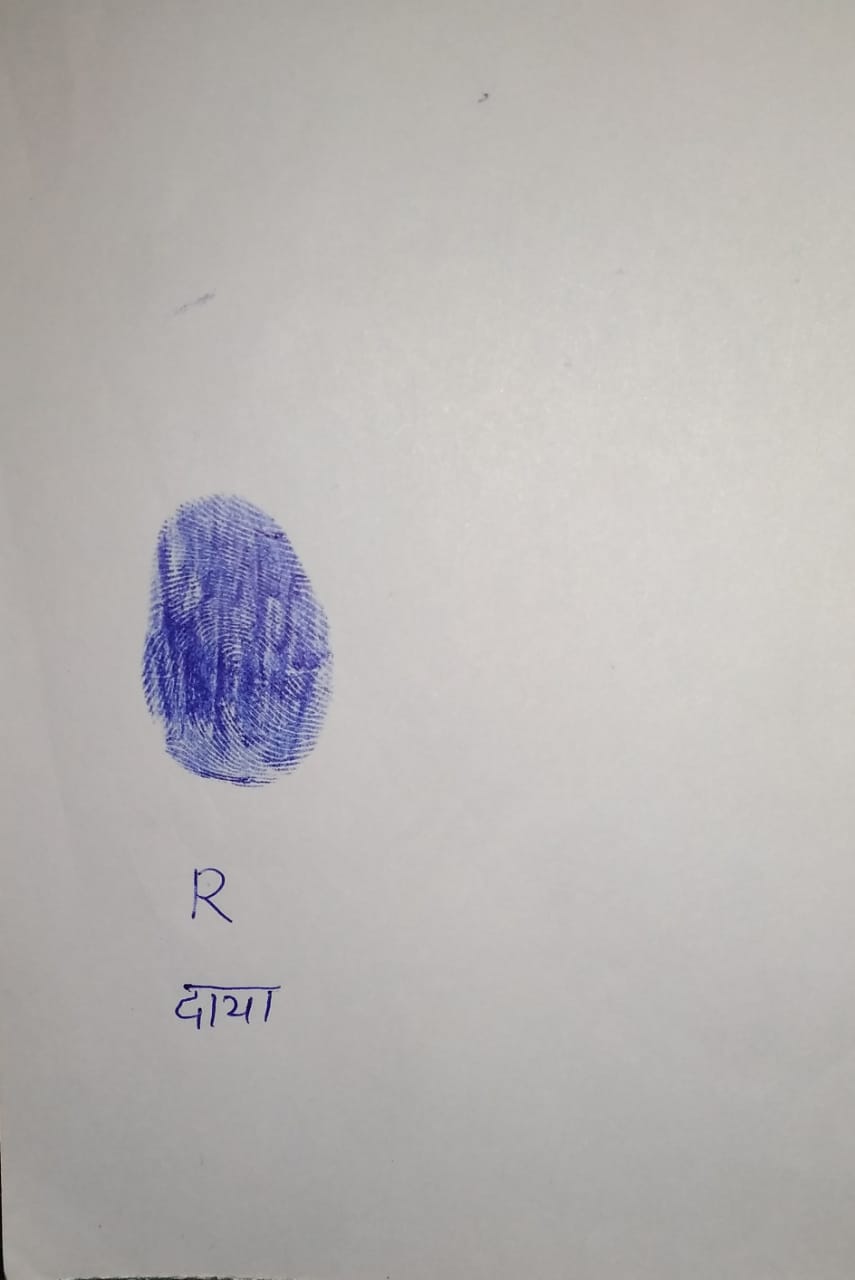 R
दाया